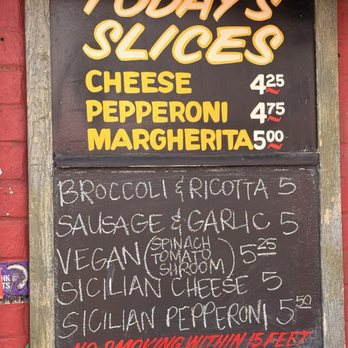 TODAYS
SLICES
CHEESE 4.25
PEPPERONI 4.75
MARGHERITA 5.00
BROCCOLI & RICOTTA 5
SAUSAGE & GARLIC 5
VEGAN (SPINACH TOMATO SHROOM) 5.25
SICILIAN CHEESE 5
SICILIAN PEPPERONI 5.50
NO SMOKING WITHIN 15 FEET